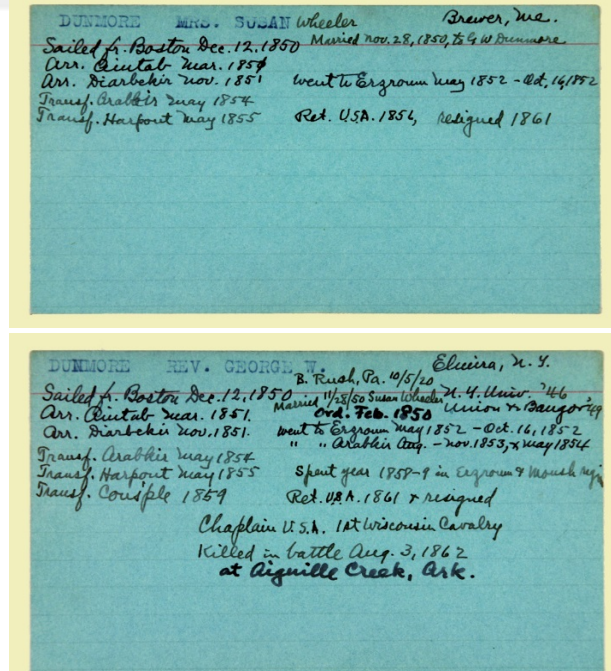 DUNMORE MRS. SUSAN Wheeler Brewer, Me.
Sailed fr. Boston Dec. 12, 1850 Married Nov. 28, 1850, to G W Dunmore
Arr. Aintab Mar. 1851
Arr. Diarbekir Nov. 1851 Went to Erzroum May 1852 - Oct, 16, 1852
Transf. Arabkir May 1854
Transf. Harpout May 1855 Ret. U.S.A. 1856, resigned 1861
DUNMORE REV. GEORGE W. Elmira, N.Y.
B. Rush, Pa. 10/5/20
Sailed fr. Boston Dec. 12, 1850 Married 11/28/50 Susan Wheeler N.Y. Univ. '46
Arr. Aintab Mar. 1851. Ord. Feb. 1850 Union & Bangor '49
Arr. Diarbekir Nov. 1851. Went to Erzroum May 1852 - Oct. 16, 1852
" " Arabkir Aug. - Nov. 1853, & May 1854
Transf. Arabkir May 1854
Transf. Harpout May 1855 Spent year 1858-9 in Erzroum & Moush
Transf. Cons'ple 1859 Ret. U.S.A. 1861 & resigned
Chaplain U.S.A. 1st Wisconsin Cavalry
Killed in battle Aug. 3, 1862
at Aiguille Creek, Ark.